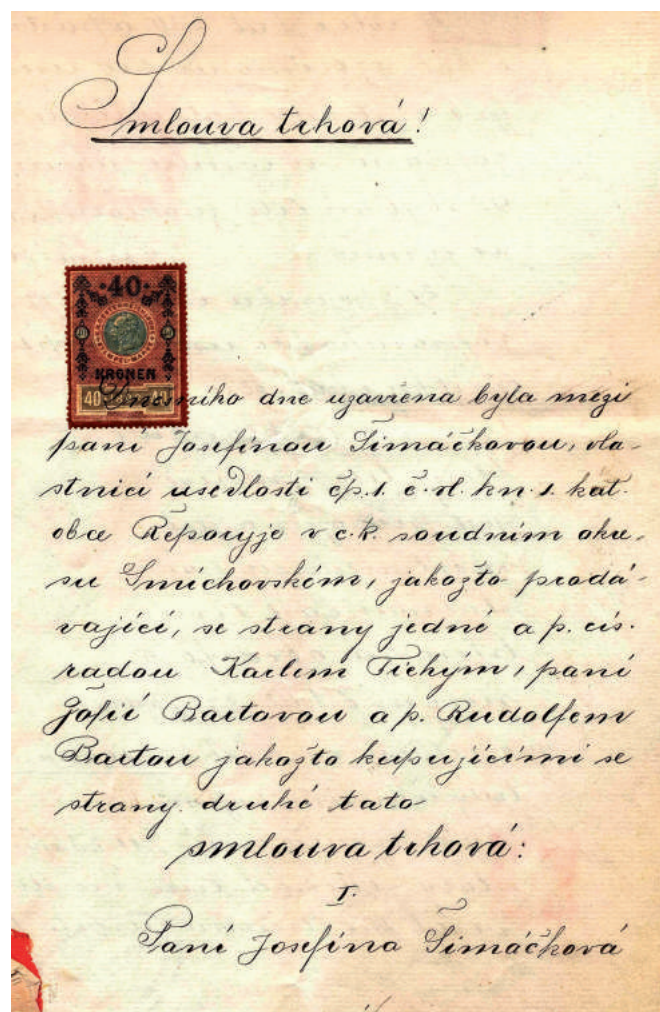 Smlouva trhová!
40
KRONEN
40
Dnešního dne uzavřena byla mezi
paní Josefínou Šimáčkovou, vla-
stnicí usedlosti čp. 1. č. vl. kn. 1. kat.
obce Řeporyje v c. k. soudním okre-
su Smíchovském, jakožto prodá-
vající, se strany jedné a p. cís.
radou Karlem Tichým, paní
Žofií Bartovou a p. Rudolfem
Bartou jakožto kupujícími se
strany druhé tato
smlouva trhová:
I.
Paní Josefína Šimáčková